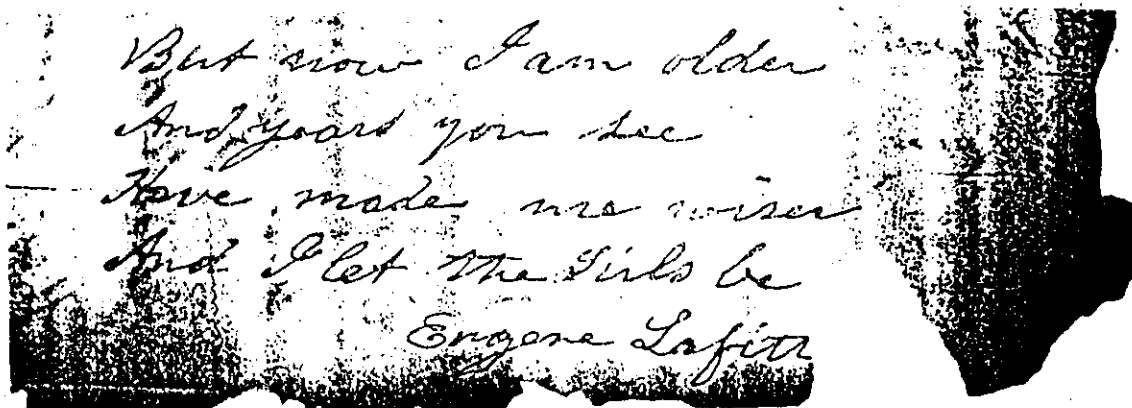 But now I am older
And years you see
Have made me wiser
And I let the Girls be
Eugene Lafitt